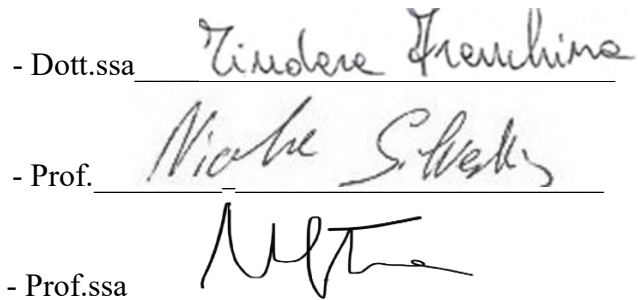 - Dott.ssa Tindara Franchina
- Prof. Nicola Silvestris
- Prof.ssa